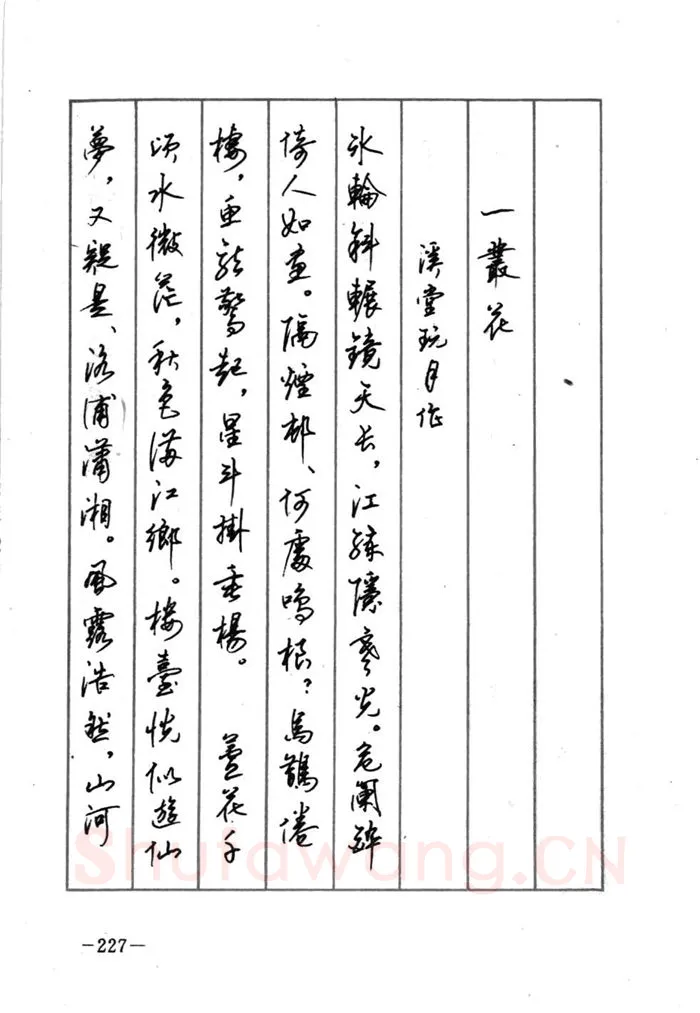 一叢花
溪堂玩月作
氷輪斜輾鏡天长，江練隱寒光。危闌醉
倚人如畫。隔煙邨、何處鳴榔？烏鵲倦
棲，魚龍驚起，星斗掛垂楊。　蘆花千
頃水微茫，秋色滿江鄉。樓臺恍似遊仙
夢，又疑是、洛浦瀟湘。風露浩然，山河
Shufawang.CN
—227—